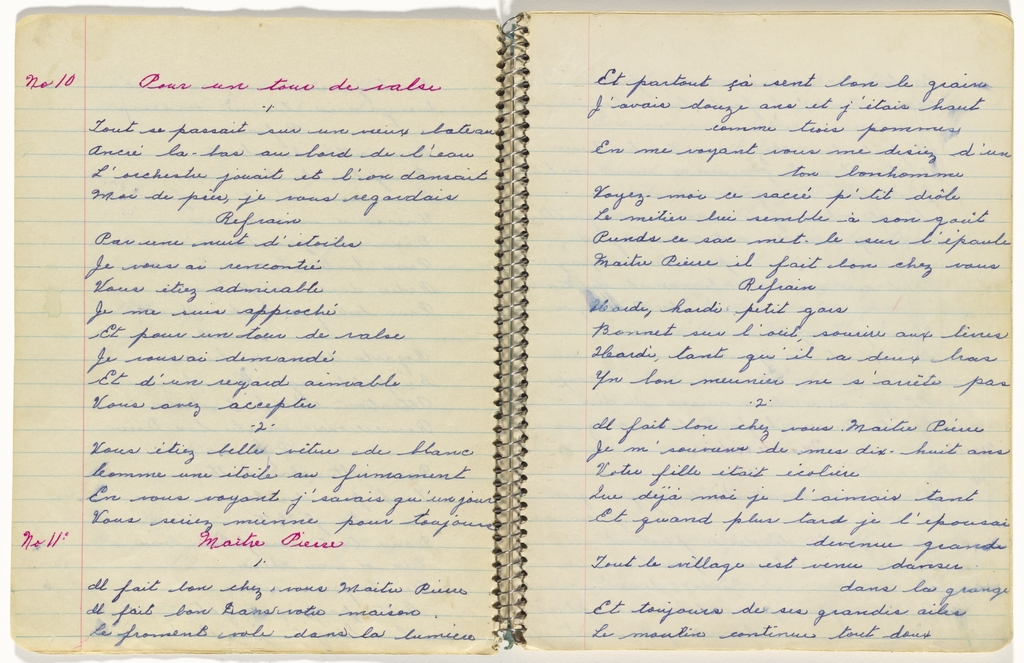 No 10
Pour un tour de valse
.1.
Tout se passait sur un vieux bateau
Ancré la-bas au bord de l'eau
L'orchestre jouait et l'on dansait
Moi de près, je vous regardais
Refrain
Par une nuit d'étoiles
Je vous ai rencontré
Vous étiez admirable
Je me suis approché
Et pour un tour de valse
Je vous ai demandé
Et d'un regard aimable
Vous avez accepter
-2-
Vous étiez belle vêtue de blanc
Comme une étoile au firmament
En vous voyant j'savais qu'un jour
Vous seriez mienne pour toujours
No 11:
Maître Pierre
1.
Il fait bon chez, vous Maitre Pierre
Il fait bon Dans votre maison
Le froment vole dans la lumière
Et partout çà sent bon le grain
J'avais douze ans et j'étais haut
comme trois pommes
En me voyant vous me disiez d'un
ton bonhomme
Voyez-moi ce sacré p'tit drôle
Le métier lui semble à son goût
Prends ce sac met-le sur l'épaule
Maitre Pierre il fait bon chez vous
Refrain
Hardi, hardi petit gars
Bonnet sur l'oeil, sourire aux lèvres
Hardi, tant qu'il a deux bras
Un bon meunier ne s'arrête pas
.2.
Il fait bon chez vous Maitre Pierre
Je m'souviens de mes dix-huit ans
Votre fille était écolière
Que déjà moi je l'aimais tant
Et quand plus tard je l'épousai
devenue grande
Tout le village est venu danser
dans la grange
Et toujours de ses grandes ailes
Le moulin continue tout doux